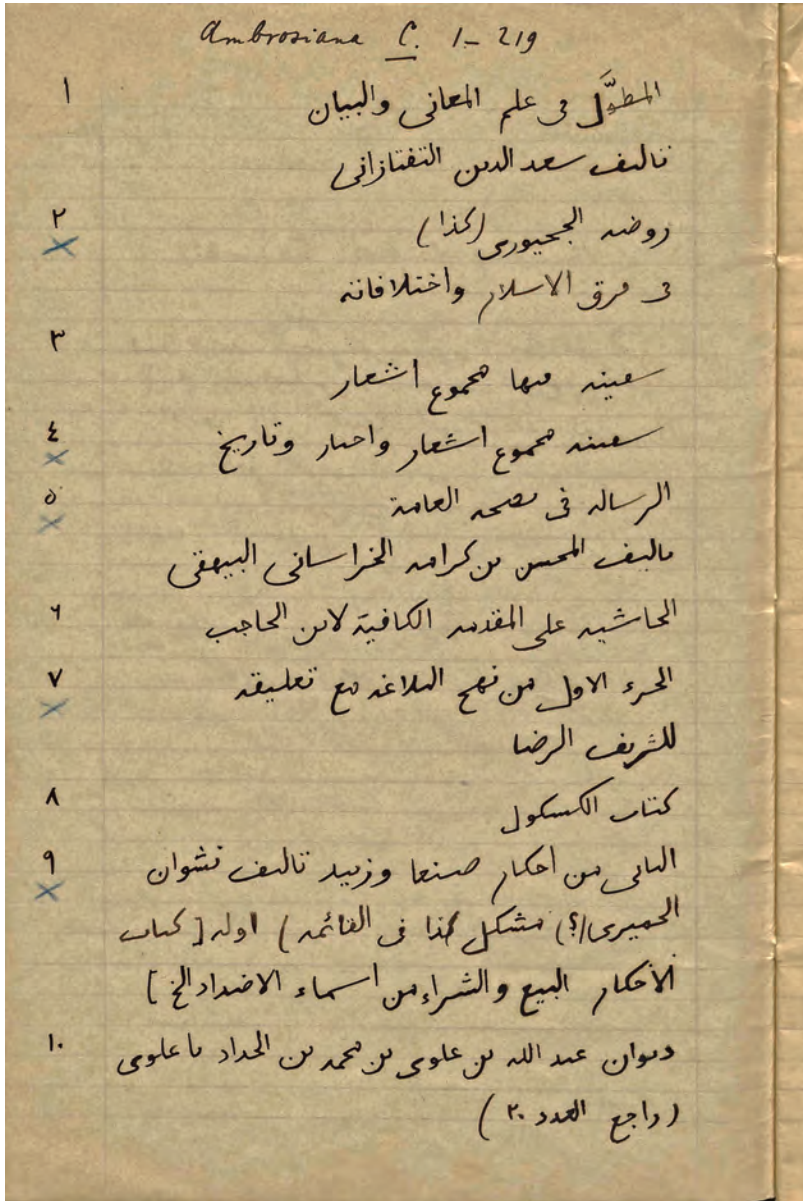 Ambrosiana C. 1-219
١ المطوَّل في علم المعاني والبيان
تاليف سعد الدين التفتازاني
٢ روضه الجحيورى (كذا)
فى فرق الاسلام واختلافاته
٣ سفينه فيها مجموع اشعار
٤ سفينه مجموع اشعار واخبار وتاريخ
٥ الرساله فى نصيحه العامة
تاليف المحسن بن كرامه الخراسانى البيهقى
٦ الحاشيه على المقدمه الكافية لابن الحاجب
٧ الجزء الاول من نهج البلاغه مع تعليقه
للشريف الرضا
٨ كتاب الكسكول
٩ الثانى من احكام صنعا وزبيد تاليف نشوان
الحميرى (؟) مشكل كذا فى القائمه) اوله [كتاب
الأحكام البيع والشراء من اسماء الاضداد الخ]
١٠ ديوان عبد الله بن علوى بن محمد بن الحداد با علوى
(راجع العدد ٢٠)